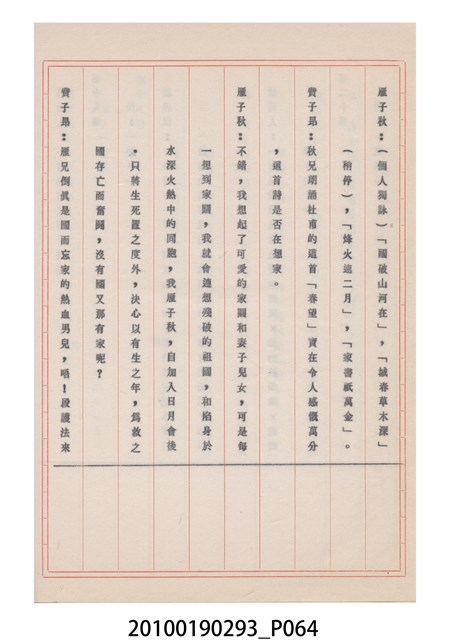 雁子秋：（個人獨詠）「國破山河在」，「城春草木深」
（稍停），「烽火連三月」，「家書祗萬金」。
費子昂：秋兄朗誦杜甫的這首「春望」實在令人感慨萬分
，這首詩是否在想家。
雁子秋：不錯，我想起了可愛的家園和妻子兒女，可是每
一想到家園，我就會連想殘破的祖國，和陷身於
水深火熱中的同胞，我雁子秋，自加入日月會後
，只將生死置之度外，決心以有生之年，為救之
國存亡而奮鬥，沒有國又那有家呢？
費子昂：雁兄倒真是國而忘家的熱血男兒，唱！段護法來
20100190293_P064